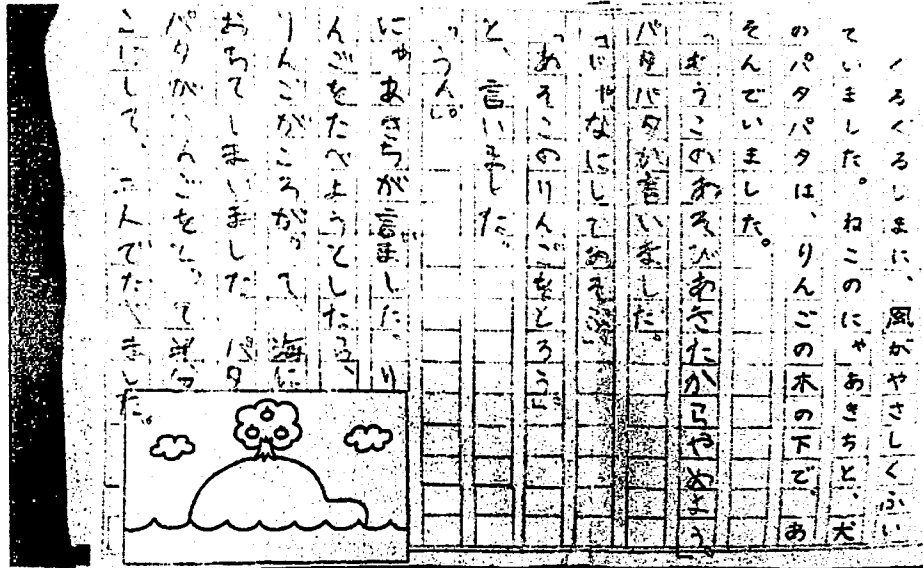 くろくるしまに、風がやさしくふい
ていました。ねこのにゃあきちと、犬
のパタパタは、りんごの木の下で、あ
そんでいました。
「もうこのあそびあきたからやめよう。
パタパタが言いました。
「じゃなにしてあそぶ
「あそこのりんごをとろう」
と、言いました。
「うん。」
にゃあきちが言ました。り
んごをたべようとしたら、
りんごがころがって海に
おちてしまいました パタ
パタがりんごをとって
こにして、二人でたべました。